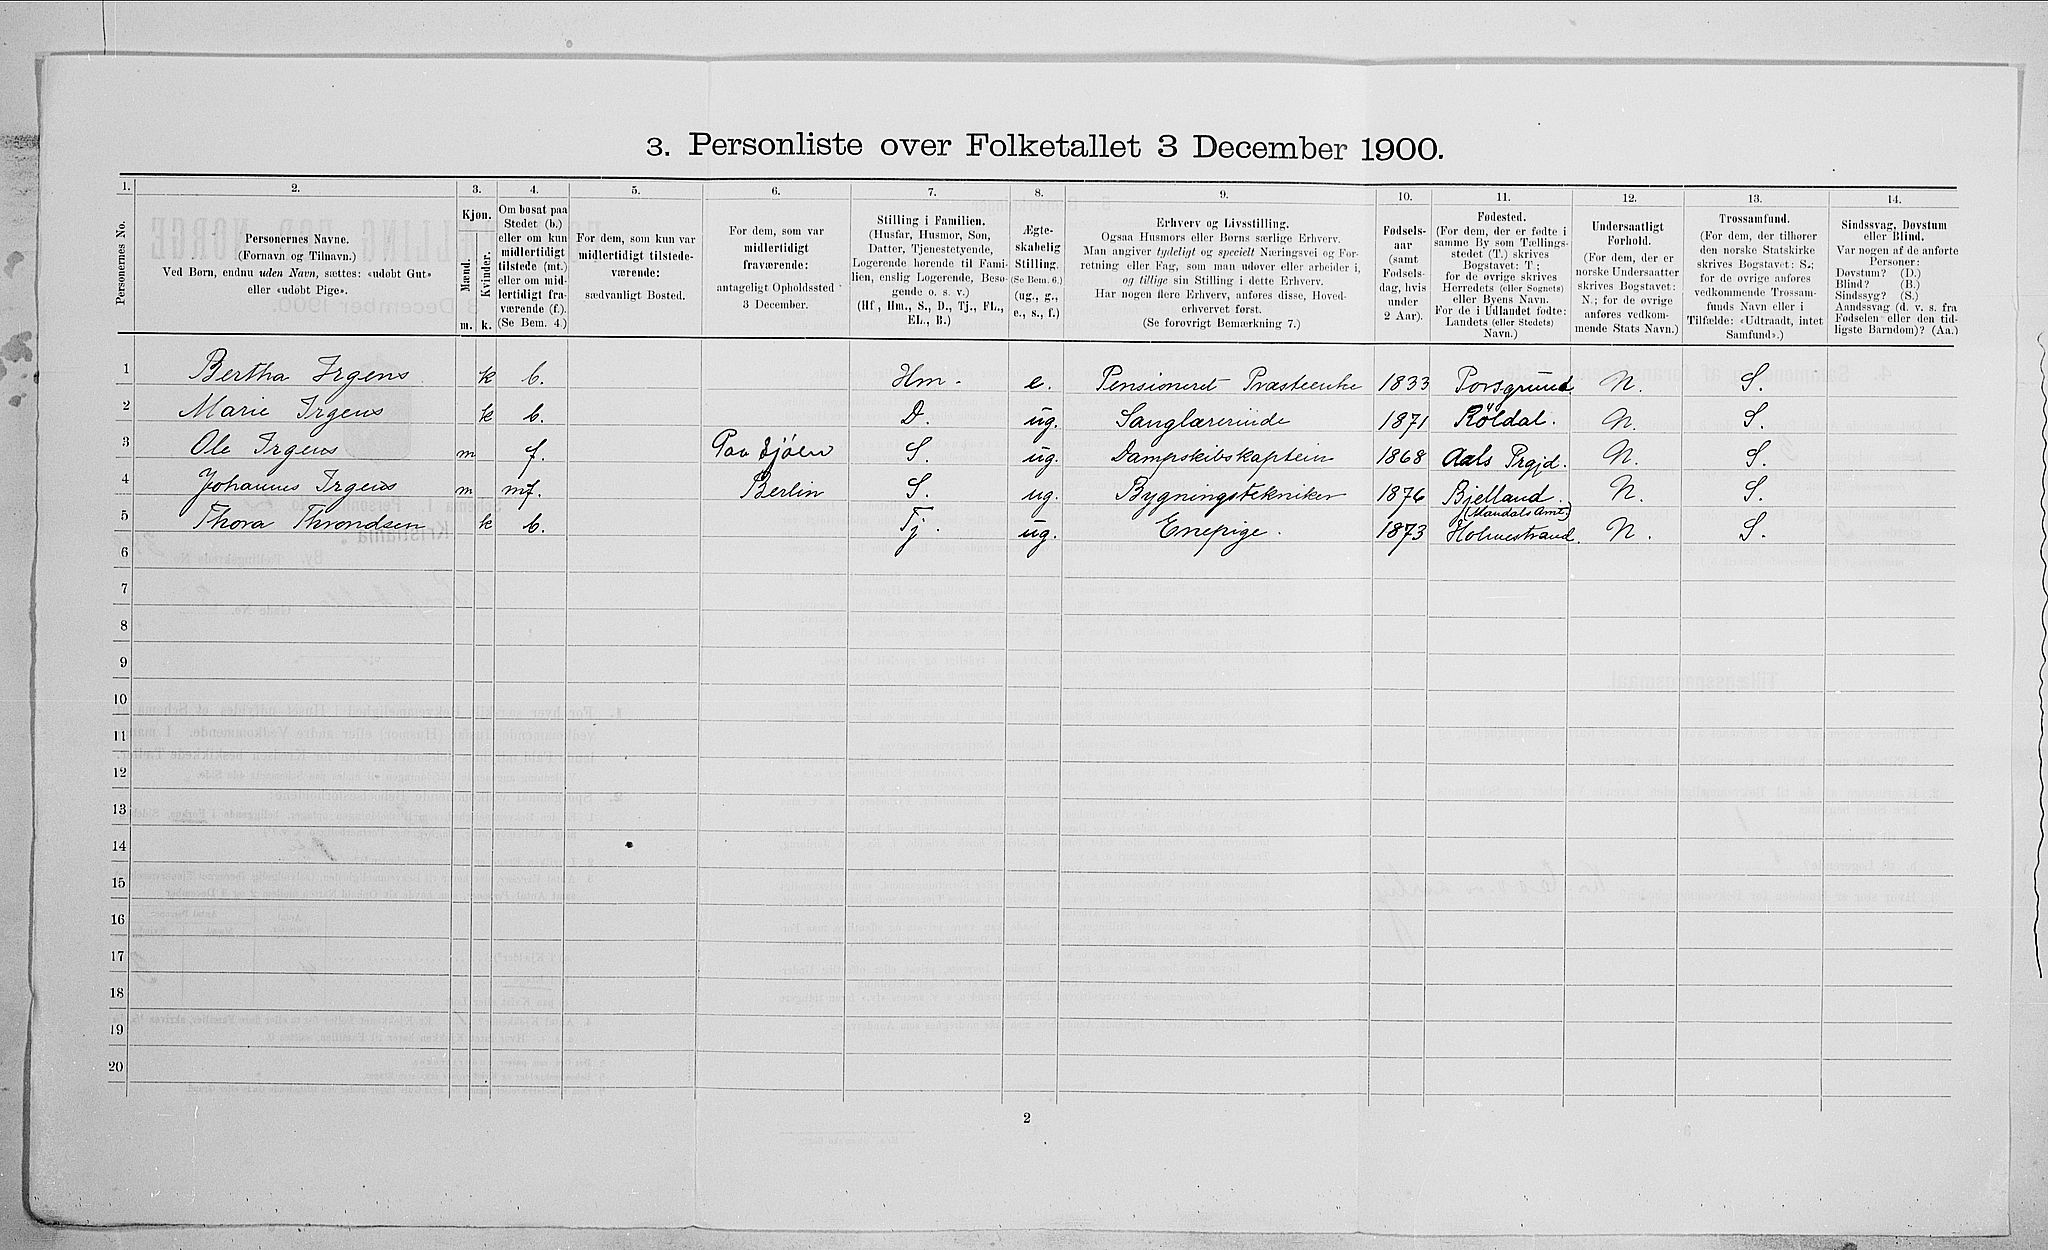 3. Personliste over Folketallet 3 December 1900.
1. 2. 3. 4. 5. 6. 7. 8. 9. 10. 11. 12. 13. 14.
Personernes No.
Personernes Navne.
(Fornavn og Tilnavn.)
Ved Børn, endnu uden Navn, sættes: «udøbt Gut»
eller «udøbt Pige».
Kjøn.
Mænd.
Kvinder.
m. k.
Om bosat paa
Stedet (b.)
eller om kun
midlertidigt
tilstede (mt.)
eller om mid-
lertidigt fra-
værende (f.).
(Se Bem. 4.)
For dem, som kun var
midlertidigt tilstede-
værende:
sædvanligt Bosted.
For dem, som var
midlertidigt
fraværende:
antageligt Opholdssted
3 December.
Stilling i Familien.
(Husfar, Husmor, Søn,
Datter, Tjenestetyende,
Logerende hørende til Fami-
lien, enslig Logerende, Besø-
gende o. s. v.)
(Hf, Hm., S., D., Tj., FL.,
EL., B.)
Ægte-
skabelig
Stilling.
(Se Bem. 6.)
(ug., g.,
e., s., f.)
Erhverv og Livsstilling.
Ogsaa Husmors eller Børns særlige Erhverv.
Man angiver tydeligt og specielt Næringsvei og For-
retning eller Fag, som man udøver eller arbeider i,
og tillige sin Stilling i dette Erhverv.
Har nogen flere Erhverv, anføres disse, Hoved-
erhvervet først.
(Se forøvrigt Bemærkning 7.)
Fødsels-
aar
(samt
Fødsels-
dag, hvis
under
2 Aar).
Fødested.
(For dem, der er fødte i
samme By som Tællings-
stedet (T.) skrives
Bogstavet: T;
for de øvrige skrives
Herredets (eller Sognets)
eller Byens Navn.
For de i Udlandet fødte:
Landets (eller Stedets)
Navn.)
Undersaatligt
Forhold.
(For dem, der er
norske Undersaatter
skrives Bogstavet:
N.; for de øvrige
anføres vedkom-
mende Stats Navn.)
Trossamfund.
(For dem, der tilhører
den norske Statskirke
skrives Bogstavet: S.;
for de øvrige anføres
vedkommende Trossam-
funds Navn eller i
Tilfælde: «Udtraadt, intet
Samfund».)
Sindssvag, Døvstum
eller Blind.
Var nogen af de anførte
Personer:
Døvstum? (D.)
Blind? (B.)
Sindssyg? (S.)
Aandssvag (d. v. s. fra
Fødselen eller den tid-
ligste Barndom)? (Aa.)
1 Bertha Irgens k b. Hm. e. Pensioneret Præsteenke 1833 Porsgrund. N. S.
2 Marie Irgens k b. D. ug. Sanglærerinde 1871 Röldal. N. S.
3 Ole Irgens m f. Paa Sjöen S. ug. Dampskibskaptein 1868 Aals Prgjd. N. S.
4 Johannes Irgens m mf. Berlin S. ug. Bygningstekniker 1876 Bjelland. N. S.
(Mandals Amt.)
5 Thora Throndsen k b. Tj. ug. Enepige. 1873 Holmestrand. N. S.
6
7
8
9
10
11
12
13
14
15
16
17
18
19
20
2